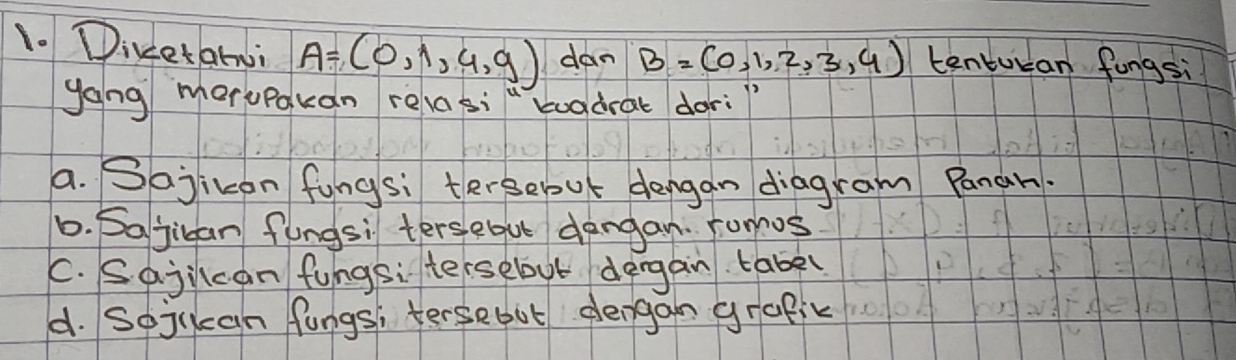 1. Diketahui A = (0,1,4,9) dan B = (0,1,2,3,4) tentukan fungsi
yang merupakan relasi "kuadrat dari"
a. Sajikan fungsi tersebut dengan diagram Panah.
b. Sajikan fungsi tersebut dangan rumus
C. Sajikan fungsi tersebut dengan tabel
d. Sajikan fungsi tersebut dengan grafik